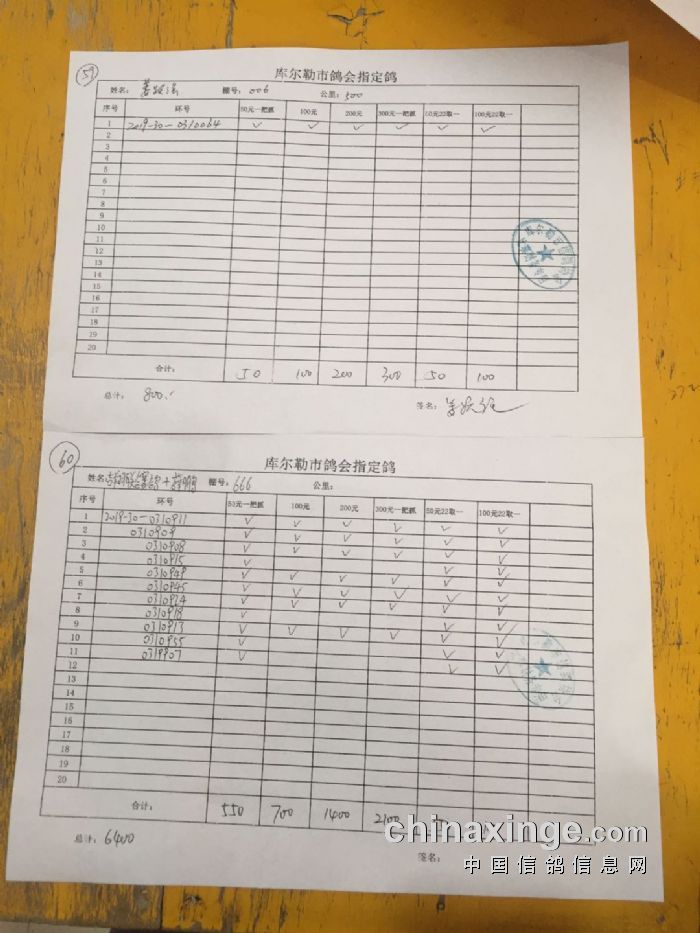 59
库尔勒市鸽会指定鸽
姓名: 棚号: 006 公里: 500
序号 环号 50元一把抓 100元 200元 300元一把抓 50元22取一 100元22取一
1 2019-30-0310064 ✓ ✓ ✓ ✓ ✓ ✓
2
3
4
5
6
7
8
9
10
11
12
13
14
15
16
17
18
19
20
合计: 50 100 200 300 50 100
总计: 800.
签名:
60
库尔勒市鸽会指定鸽
姓名 棚号: 666 公里:
序号 环号 50元一把抓 100元 200元 300元一把抓 50元22取一 100元22取一
1 2019-30-0310911 ✓ ✓ ✓ ✓ ✓ ✓
2 0310909 ✓ ✓ ✓ ✓ ✓ ✓
3 0310908 ✓ ✓ ✓ ✓ ✓ ✓
4 0310915 ✓ ✓ ✓
5 0310949 ✓ ✓ ✓ ✓ ✓ ✓
6 0310945 ✓ ✓ ✓ ✓ ✓ ✓
7 0310924 ✓ ✓ ✓ ✓ ✓ ✓
8 0310918 ✓
9 0310913 ✓ ✓ ✓ ✓ ✓ ✓
10 0310955 ✓ ✓ ✓
11 0319907 ✓ ✓ ✓
12 ✓ ✓
13
14
15
16
17
18
19
20
合计: 550 700 1400 2100
总计: 6400
签名:
chinaxinge.com
中国信鸽信息网